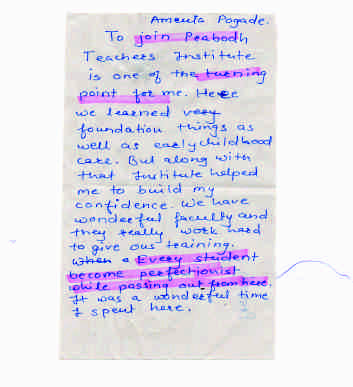 Ameeta Pogade.
To join Peabodh
Teachers Institute
is one of the turning
point for me. Here
we learned very
foundation things as
well as earlychildhood
care. But along with
that Institute helped
me to build my
confidence. We have
wonderful faculty and
they really work hard
to give ous training.
When a Every student
become perfectionist
while passing out from here.
It was a wonderful time
I spent here.